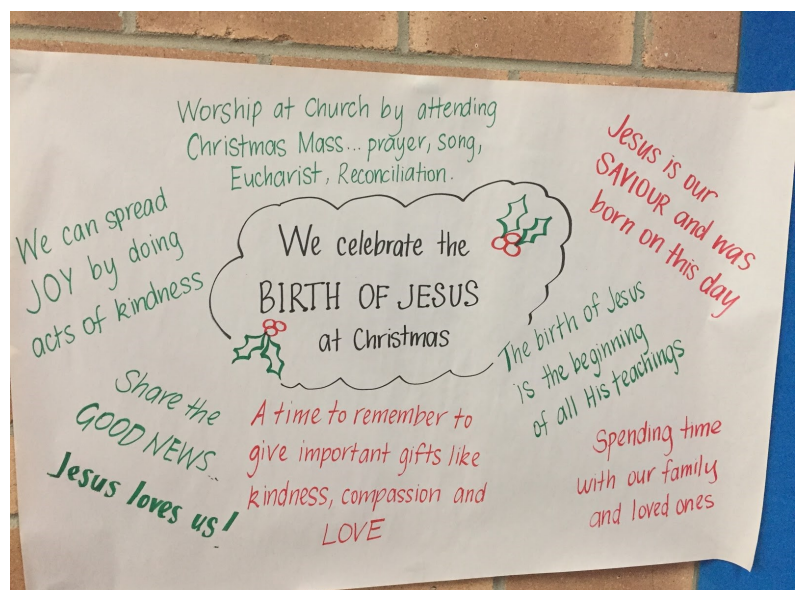 Worship at Church by attending
Christmas Mass... prayer, song,
Eucharist, Reconciliation.
Jesus is our
SAVIOUR and was
born on this day
We can spread
JOY by doing
acts of kindness
We celebrate the
BIRTH OF JESUS
at Christmas
The birth of Jesus
is the beginning
of all His teachings
Share the
GOOD NEWS...
Jesus loves us!
A time to remember to
give important gifts like
kindness, compassion and
LOVE
Spending time
with our family
and loved ones